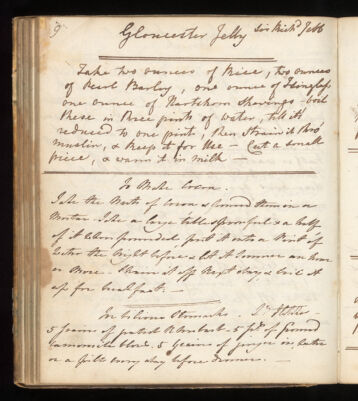 9
Gloucester Jelly Sir Rich.d Jebb
Take two ounces of Rice, two ounces
of Pearl Barley, one ounce of Isinglass,
one ounce of Hartshorn Shavings - boil
these in three pints of water, till it's
reduced to one pint, then Strain it thro'
muslin, & keep it for Use - Cut a small
piece, & warm it in milk -
To Make Cocoa.
Take the Nuts of Cocoa & pound them in a
Mortar. Take a large table spoonful & a half
of it when pounded, put it into a Pint of
water the Night before & let it simmer an hour
or More. Strain it off Next day & boil it
up for breakfast.
For bilious Stomachs. Dr
5 grains of Rhubarb - 5 grs of Ground
Camomile 5 Grains of ginger in water
or a pill every day before dinner.